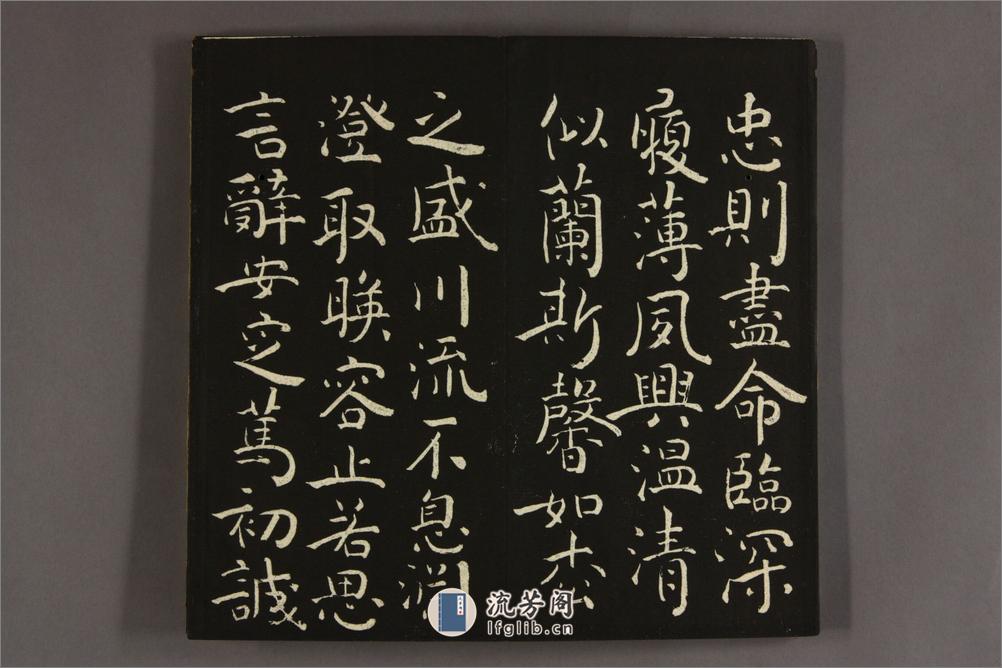 忠則盡命臨深
履薄夙興温清
似蘭斯馨如松
之盛川流不息淵
澄取暎容止若思
言辭安定篤初誠
流芳阁
lfglib.cn